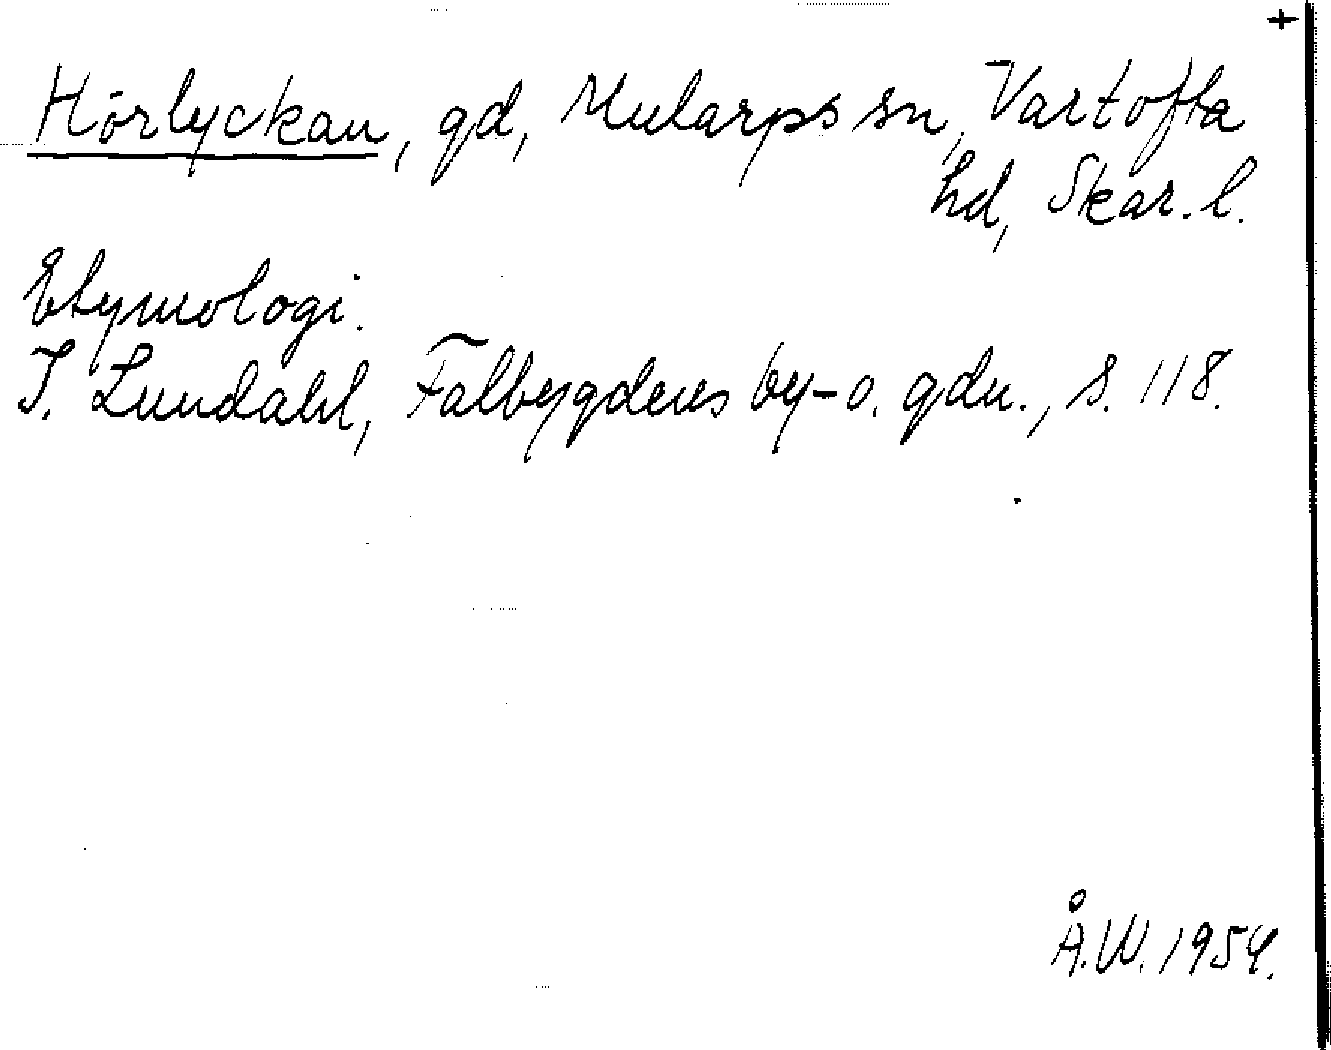 +
Hörlyckan, gd, Mularps sn, Vartofta
hd, Skar. l.
Etymologi.
I. Lundahl, Falbygdens by- o. gdn., s. 118.
Å.W. 1954.